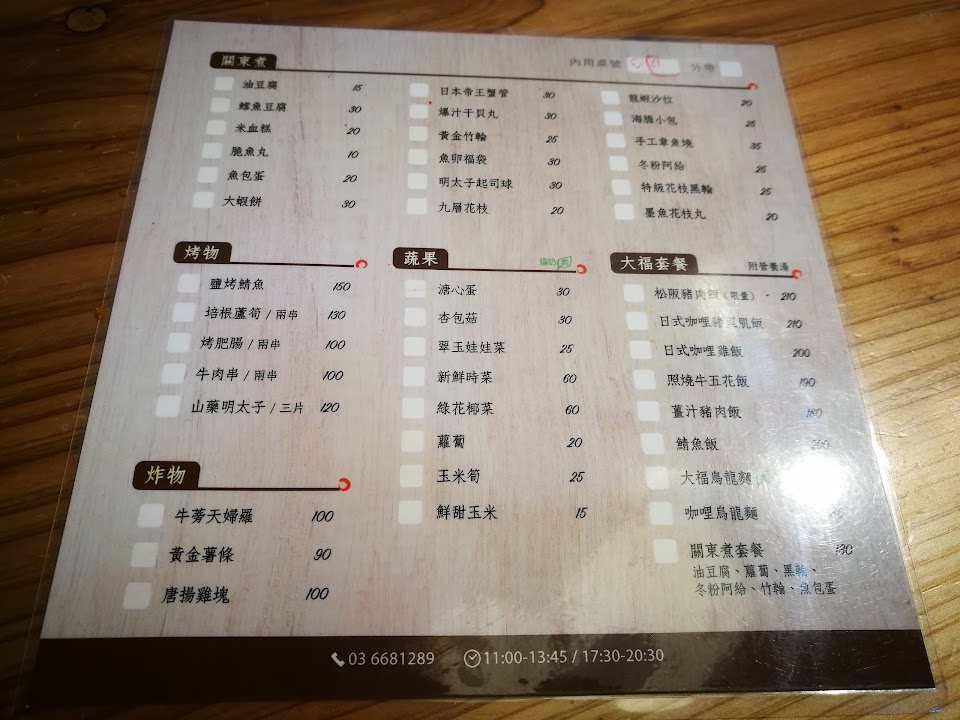 關東煮 內用桌號 外帶
油豆腐 15
鱈魚豆腐 30
米血糕 20
脆魚丸 10
魚包蛋 20
大蝦餅 30
日本帝王蟹管 30
爆汁干貝丸 30
黃金竹輪 25
魚卵福袋 30
明太子起司球 30
九層花枝 20
龍蝦沙拉 20
海膽小包 25
手工章魚燒 35
冬粉阿給 25
特級花枝黑輪 25
墨魚花枝丸 20
烤物
鹽烤鯖魚 150
培根蘆筍 / 兩串 130
烤肥腸 / 兩串 100
牛肉串 / 兩串 100
山藥明太子 / 三片 120
炸物
牛蒡天婦羅 100
黃金薯條 90
唐揚雞塊 100
蔬果
溏心蛋 30
杏包菇 30
翠玉娃娃菜 25
新鮮時菜 60
綠花椰菜 60
蘿蔔 20
玉米筍 25
鮮甜玉米 15
大福套餐 附營養湯
松阪豬肉飯(限量) 210
日式咖哩豬 肌飯 210
日式咖哩雞飯 200
照燒牛五花飯 190
薑汁豬肉飯 180
鯖魚飯
大福烏龍麵
咖哩烏龍麵
關東煮套餐 130
油豆腐、蘿蔔、黑輪、
冬粉阿給、竹輪、魚包蛋
03 6681289 11:00-13:45 / 17:30-20:30